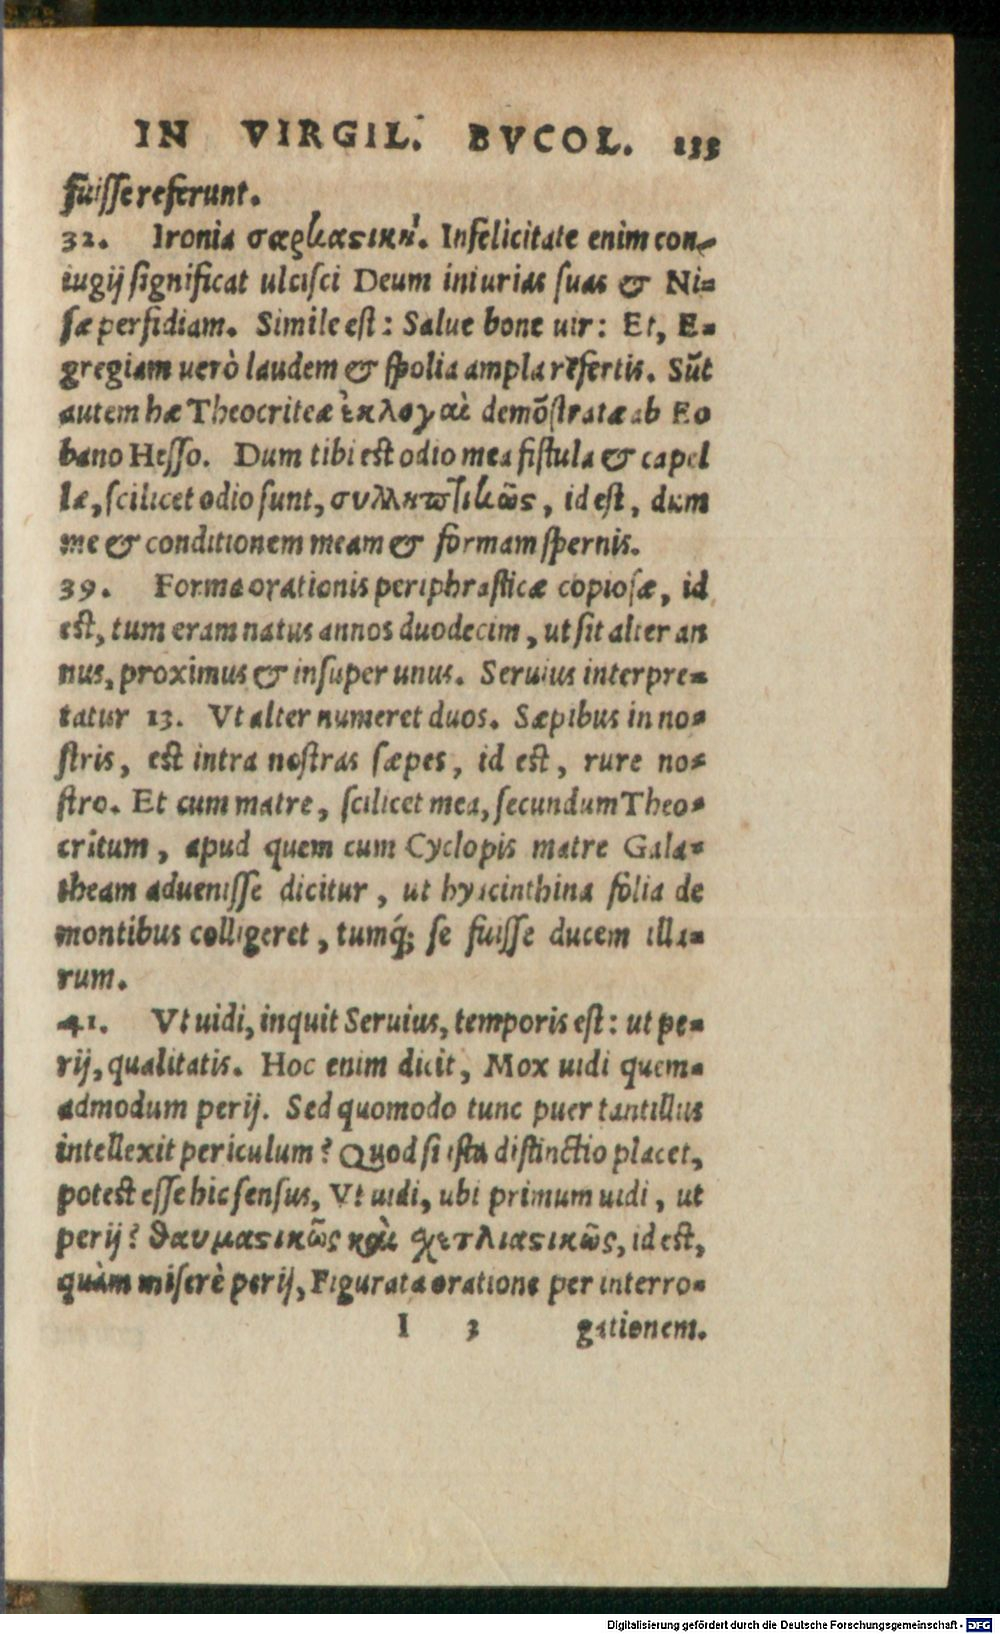 IN VIRGIL. BVCOL. 133
fuisse referunt.
32. Ironia σαρκαστική. Infelicitate enim con-
iugij significat ulcisci Deum iniurias suas & Ni-
sæ perfidiam. Simile est: Salue bone uir: Et, E-
gregiam uerò laudem & spolia ampla refertis. Sũt
autem hæ Theocriteæ ἐκλογαὶ demõstratæ ab Eo
bano Hesso. Dum tibi est odio mea fistula & capel
læ, scilicet odio sunt, συλληπτικῶς, id est, dum
me & conditionem meam & formam spernis.
39. Forma orationis periphrasticæ copiosæ, id
est, tum eram natus annos duodecim, ut sit alter an
nus, proximus & insuper unus. Seruius interpre-
tatur 13. Vt alter numeret duos. Sæpibus in no-
stris, est intra nostras sæpes, id est, rure no-
stro. Et cum matre, scilicet mea, secundum Theo-
critum, apud quem cum Cyclopis matre Gala-
theam aduenisse dicitur, ut hyacinthina folia de
montibus colligeret, tumq́; se fuisse ducem illa-
rum.
41. Vt uidi, inquit Seruius, temporis est: ut pe-
rij, qualitatis. Hoc enim dicit, Mox uidi quem-
admodum perij. Sed quomodo tunc puer tantillus
intellexit periculum? Quod si ista distinctio placet,
potest esse hic sensus, Vt uidi, ubi primum uidi, ut
perij? θαυμαστικῶς καὶ σχετλιαστικῶς, id est,
quàm miserè perij, Figurata oratione per interro-
I 3 gationem.
Digitalisierung gefördert durch die Deutsche Forschungsgemeinschaft - DFG